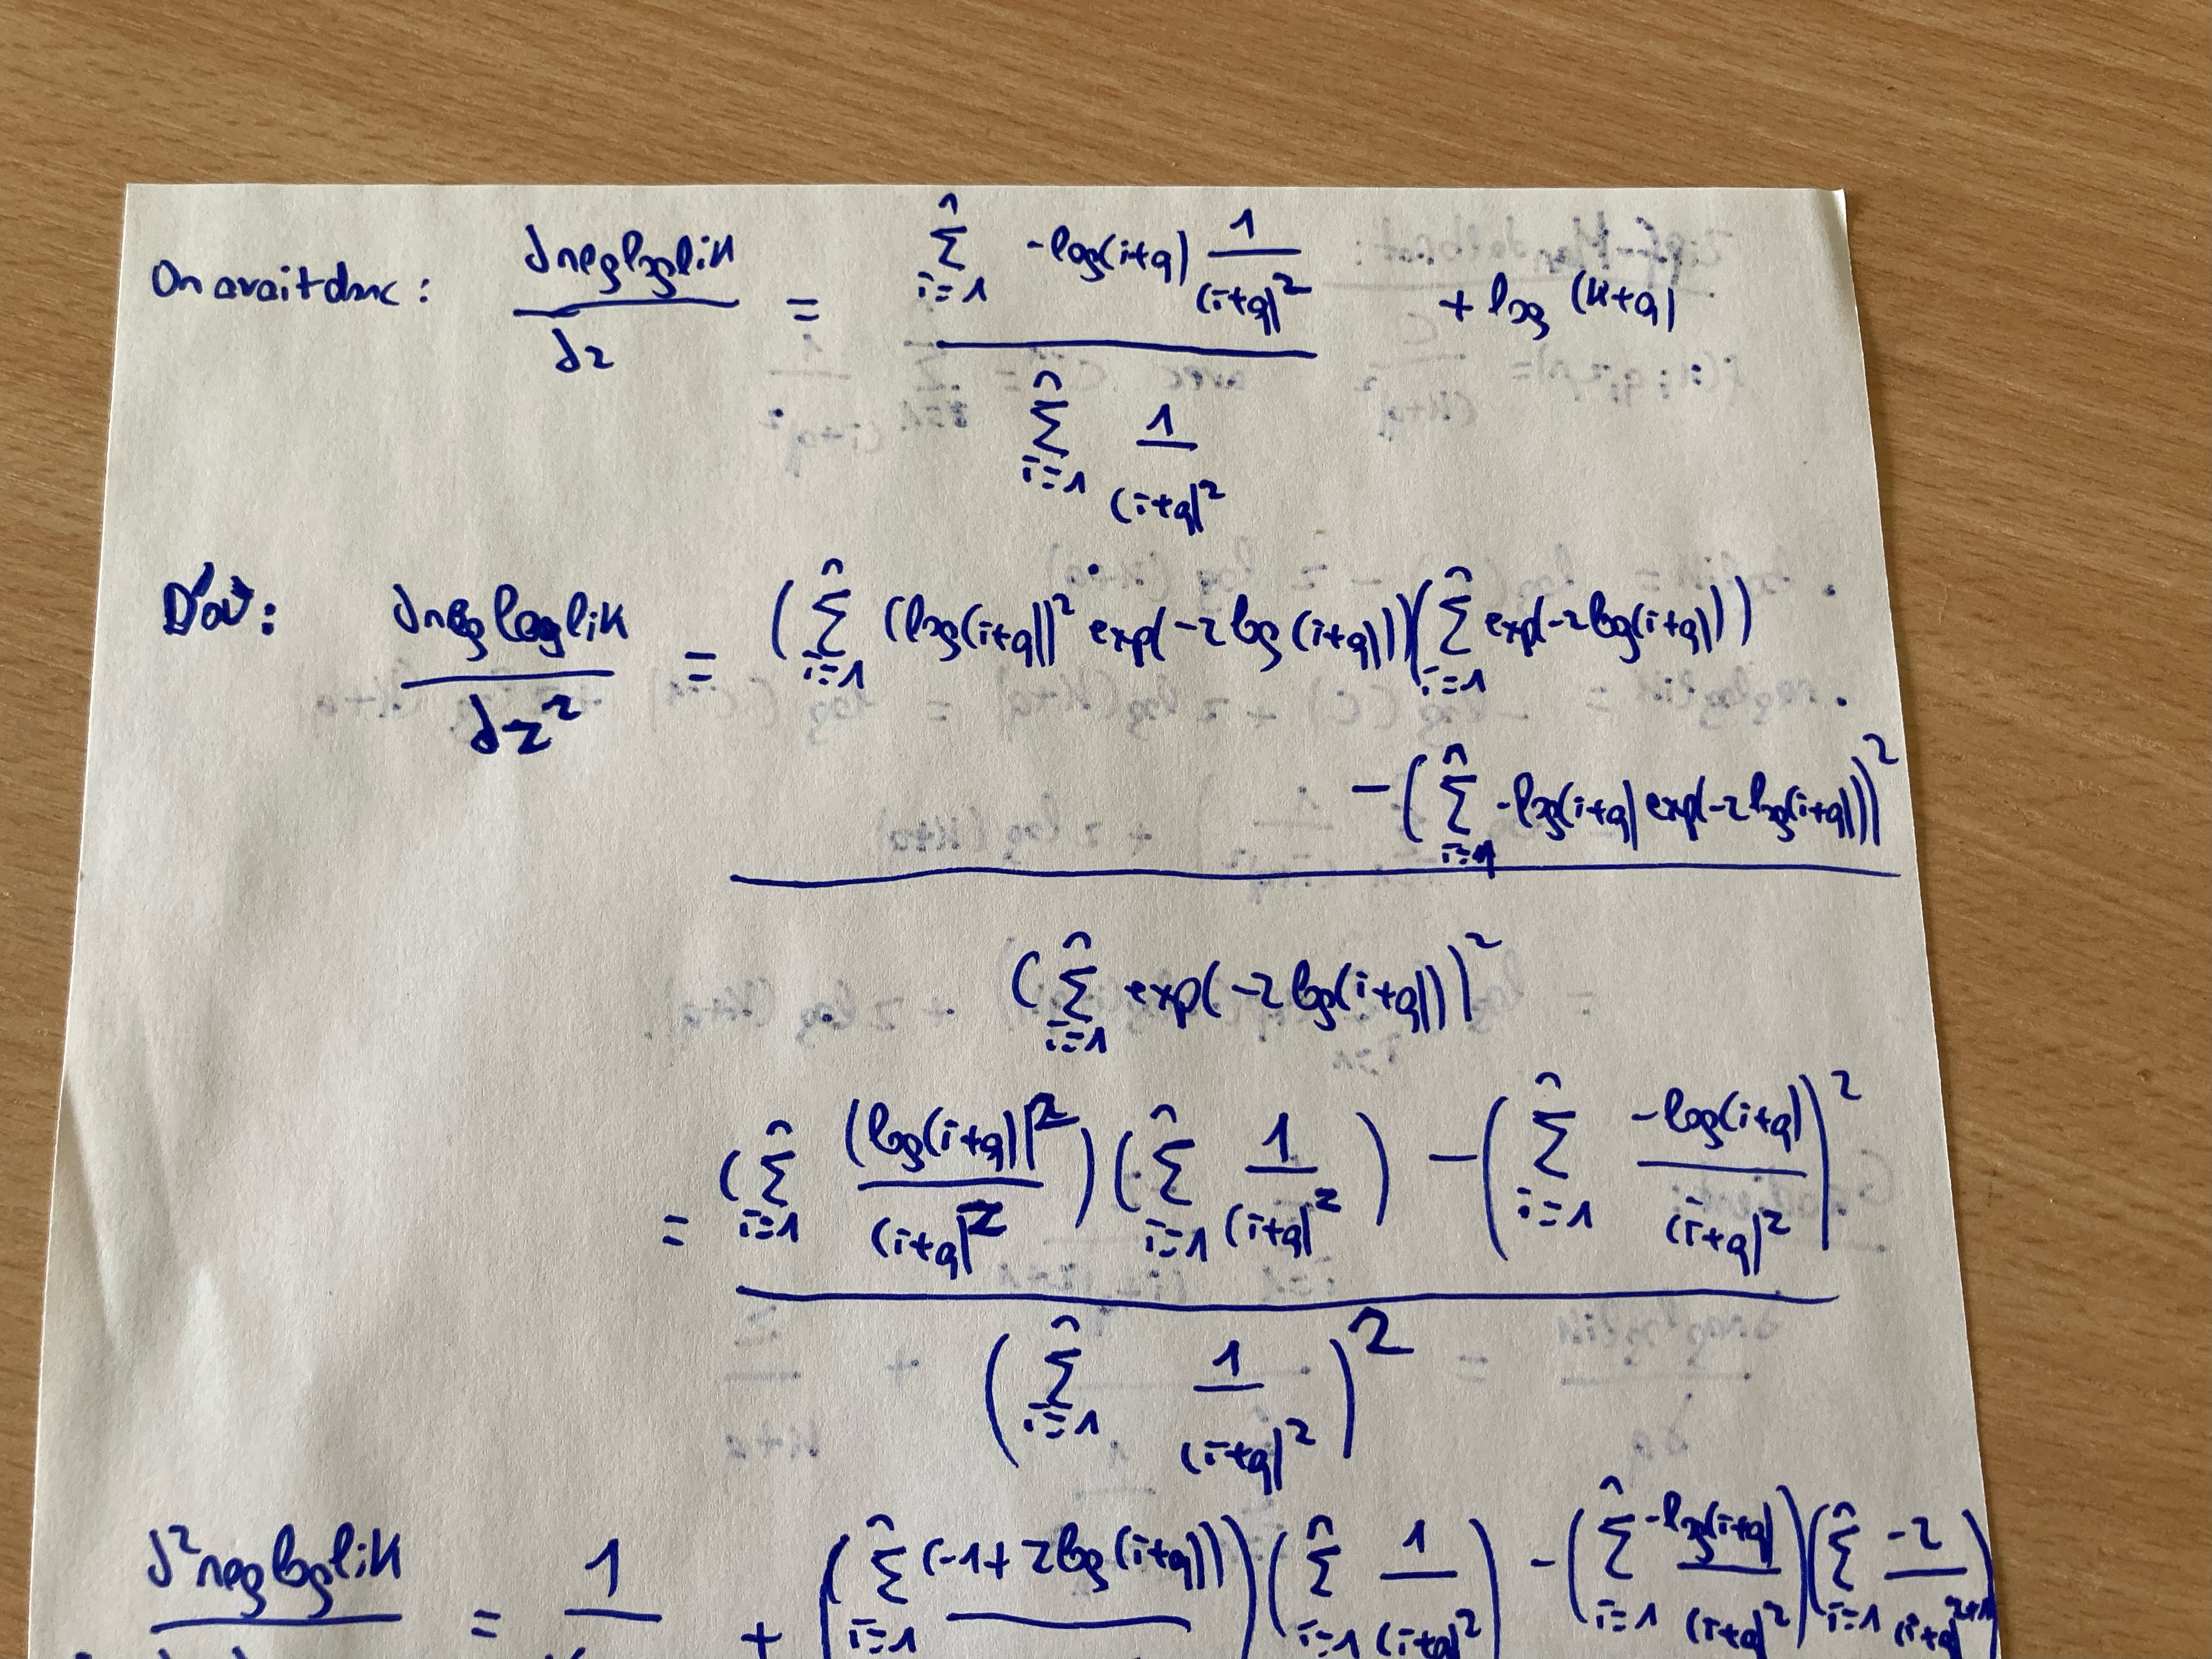 On avait donc : ∂negloglik / ∂z = Σ_{i=1}^{n} -log(i+q) 1/(i+q)^z / Σ_{i=1}^{n} 1/(i+q)^z + log (k+q)
D'où : ∂negloglik / ∂z² = (Σ_{i=1}^{n} (log(i+q))² exp(-z log(i+q)))(Σ_{i=1}^{n} exp(-z log(i+q)))
- (Σ_{i=1}^{n} -log(i+q) exp(-z log(i+q)))²
/ (Σ_{i=1}^{n} exp(-z log(i+q)))²
= (Σ_{i=1}^{n} (log(i+q))² / (i+q)^z) (Σ_{i=1}^{n} 1/(i+q)^z) - (Σ_{i=1}^{n} -log(i+q) / (i+q)^z)²
/ (Σ_{i=1}^{n} 1/(i+q)^z)²
∂²negloglik = 1 + (Σ_{i=1}^{n} (-1+z log(i+q))) (Σ_{i=1}^{n} 1/(i+q)^z) - (Σ_{i=1}^{n} -log(i+q) / (i+q)^z)(Σ_{i=1}^{n} -z / (i+q)^{z+1})